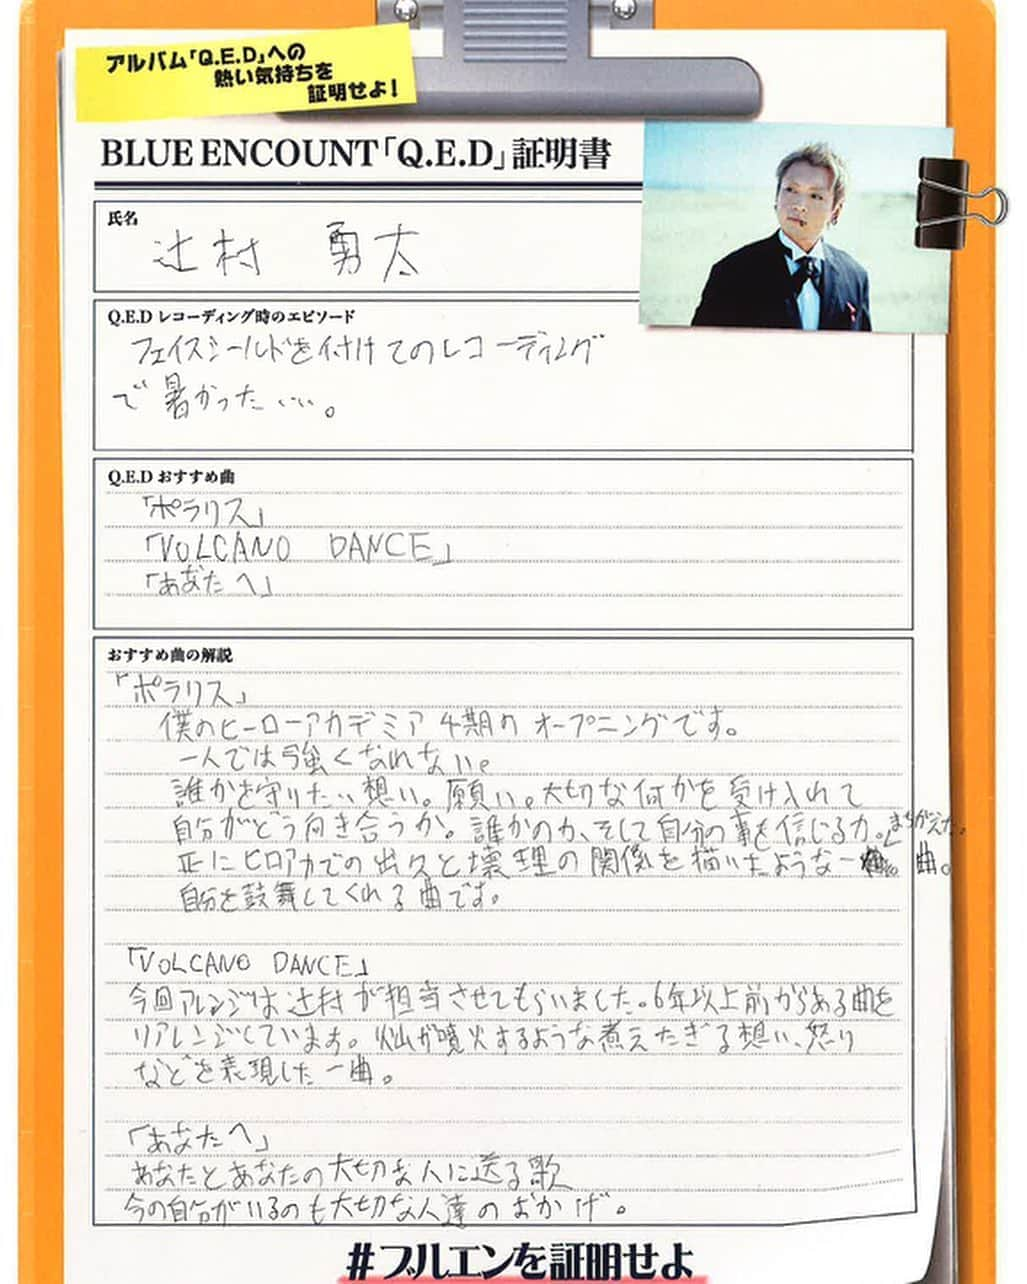 アルバム「Q.E.D」への
熱い気持ちを
証明せよ!
BLUE ENCOUNT「Q.E.D」証明書
氏名
辻村 勇太
Q.E.D レコーディング時のエピソード
フェイスシールドを付けてのレコーディング
で暑かった…。
Q.E.D おすすめ曲
「ポラリス」
「VOLCANO DANCE」
「あなたへ」
おすすめ曲の解説
「ポラリス」
僕のヒーローアカデミア4期のオープニングです。
一人では強くなれない。
誰かを守りたい想い。願い。大切な何かを受け入れて
自分がどう向き合うか。誰かのカ、そして自分の事も信じる力。まちがえた。
正にヒロアカでの出久と壊理の関係を描いたような一曲。
自分を鼓舞してくれる曲です。
「VOLCANO DANCE」
今回アレンジは辻村が担当させてもらいました。6年以上前からある曲を
リアレンジしています。火山が噴火するような煮えたぎる想い、怒り
などを表現した一曲。
「あなたへ」
あなたとあなたの大切な人に送る歌
今の自分がいるのも大切な人達のおかげ。
#ブルエンを証明せよ